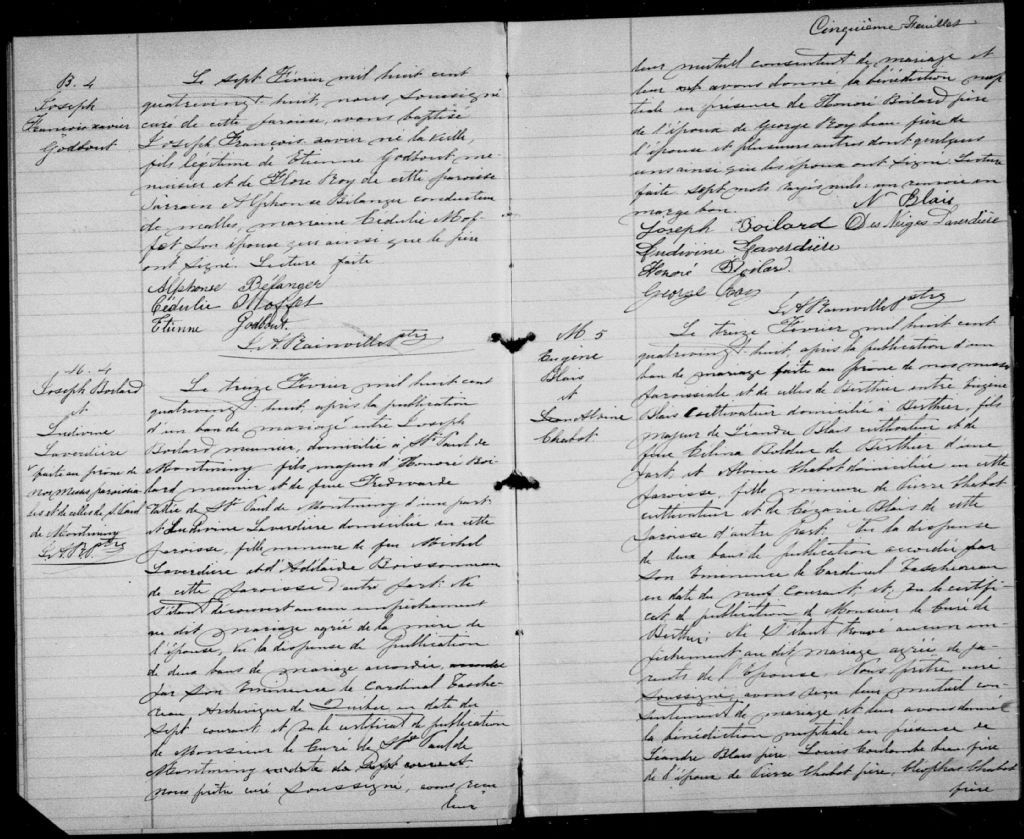 B. 4
Joseph
François xavier
Godbout
Le sept Février mil huit cent
quatrevingt huit, nous soussigné
curé de cette Paroisse, avons baptisé
Joseph François xavier né la veille,
fils legitime de Etienne Godbout me
nuisier et de Flore Roy de cette paroisse
Parrain Alphonse Bélanger conducteur
de malles, marraine Cédulie Mof
fet son épouse qui ainsi que le père
ont signé. Lecture faite
Alphonse Bélanger
Cédulie Moffet
Etienne Godbout.
L. A. Rainville Ptre
M. 4
Joseph Boilard
et
Ludivine
Laverdière
faite au prône de
nos messes paroissia
les et de celles de St Paul
de Montminy
L. A. R. Ptre
Le treize Février mil huit cent
quatrevingt huit, après la publication
d'un ban de mariage entre Joseph
Boilard meunier, domicilié à St Paul de
Montminy fils majeur d'Honoré Boi
lard meunier et de feue
de St Paul de Montminy d'une part,
et Ludivine Laverdière domiciliée en cette
Paroisse, fille mineure de feu Michel
Laverdière et d'Adélaide Boissonneau
de cette paroisse d'autre part. Ne
s'étant découvert aucun empêchement
au dit mariage agréé de la mère de
l'épouse, Vu la dispense de Publication
de deux bans de mariage accordée, accordée
par Son Eminence le Cardinal Tasche
reau Archevêque de Québec, en date du
sept courant et Vu le certificat de publication
de Monsieur le Curé de St Paul de
Montminy en date du sept courant
nous prêtre curé soussigné, avons reçu
leur
Cinquième Feuillet
leur mutuel consentement de mariage et
leur avons donné la bénédiction nup
tiale en présence de Honoré Boilard père
de l'époux de George Roy beau-frère de
l'épouse et plusieurs autres dont quelques
uns ainsi que les époux ont signé. Lecture
faite sept mots rayés nuls. un renvoi en
marge bon. N Blais
Joseph Boilard Des Neiges Laverdière
Ludivine Laverdière
Honoré Boilard.
George Roy
L. A. Rainville Ptre
M. 5
Eugène
Blais
et
Chabot.
Le treize Février mil huit cent
quatrevingt huit, après la publication d'un
ban de mariage faite au prône de nos messes
Paroissiale et de celles de Berthier entre Eugène
Blais cultivateur domicilié à Berthier, fils
majeur de Léandre Blais cultivateur et de
feue Célina Bolduc de Berthier d'une
part, et Alvine Chabot domiciliée en cette
Paroisse, fille mineure de Pierre Chabot
cultivateur et de Cezarie Blais de cette
Paroisse d'autre part. Vu la dispense
de deux bans de publication accordée par
Son Eminence le Cardinal Taschereau
en date du neuf courant, et, Vu le certifi
cat de publication de Monsieur le Curé de
Berthier; Ne s'étant trouvé aucun em
pêchement au dit mariage agréé de pa
rents de l'Epouse, Nous prêtre curé
soussigné, avons reçu leur mutuel con
sentement de mariage et leur avons donné
la bénédiction nuptiale en présence de
Léandre Blais père Louis Coulombe beau-père
de l'époux de Pierre Chabot père, Cléophas Chabot
frère